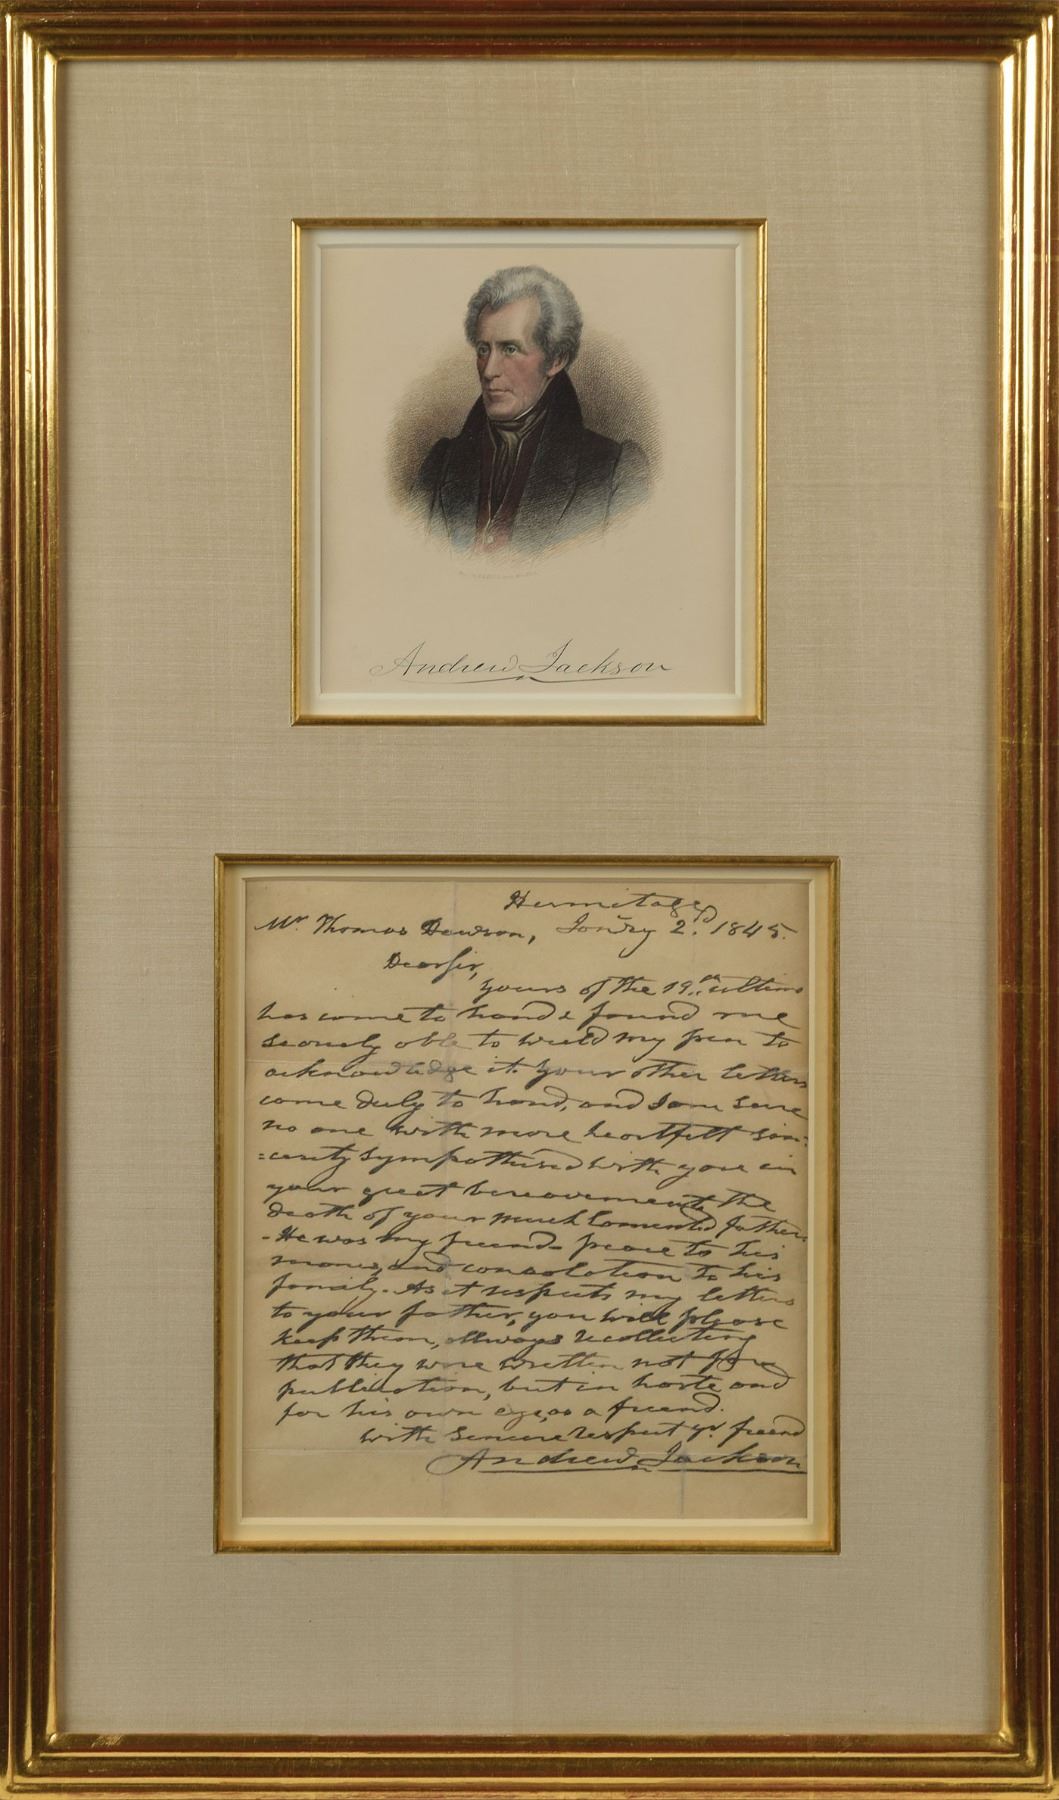 Andrew Jackson
Hermitage
Mr Thomas Dawson, Janry 2d. 1845.
Dear sir,
yours of the 19th ultimo
has come to hand & found me
scarcely able to wield my pen to
acknowledge it. Your other letters
came duly to hand, and I am sure
no one with more heartfelt sin-
=cerity sympathised with you in
your great bereavement the
death of your much lamented father.
- He was my friend - peace to his
manes, and consolation to his
family. As it respects my letters
to your father, you will please
keep them, allways recollecting
that they were written not for
publication, but in haste and
for his own eye, as a friend.
with sincere respect yr friend
Andrew Jackson